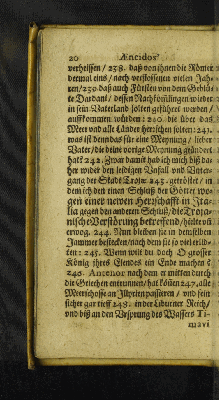 20 Æneidos
verheissen / 238. daß von ihnen die Römer
dermal eins / nach verflossenen vielen Jah-
ren / 239 daß auch Fürsten von dem Geblüt
te Dardani / dessen Nachkömlingen wieder
in sein Vaterland solten geführet werden /
aufkommen würden: 240. die über das
Meer vnd alle Länder herrschen solten: 241.
was ist denn das für eine Meynung / lieber
Vater / die deine vorige Meynung geändert
hat? 242. Zwar damit hab ich mich biß da-
her wider den leidigen Unfall vnd Unter-
gang der Stadt Troje 243. getröstet / in
dem ich den einen Schluß der Götter we-
gen einer newen Herrschafft in Ita-
lia gegen den anderen Schluß / die Troja-
nische Verstörung betreffend / hielte vñ
erwog. 244. Nun bleiben sie in demselben
Jammer bestecken / nach dem sie so viel erlid-
ten: 245. Wenn wilt du doch O grosser
König ihres Elendes ein Ende machen?
246. Antenor nach dem er mitten durch
die Griechen entrunnen / hat können 247. alle
Meerschosse an Illyrien passieren / vnd sein
sicher gar tieff 248. in der Liburner Reich /
vnd biß an den Ursprung des Wassers Ti-
mavi